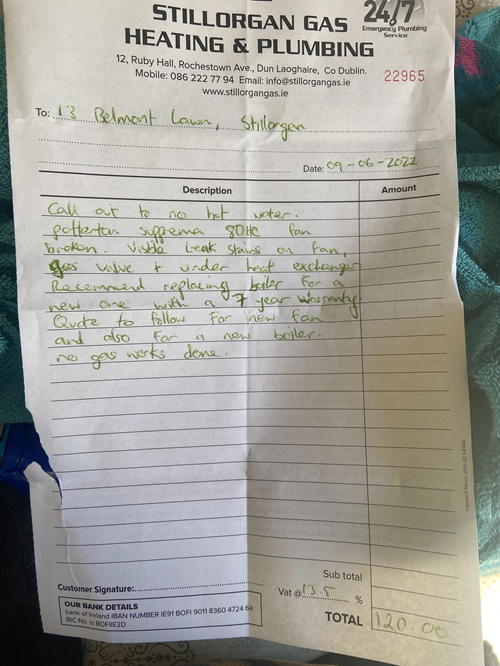 STILLORGAN GAS
HEATING & PLUMBING
24/7
Emergency Plumbing
Service
12, Ruby Hall, Rochestown Ave., Dun Laoghaire, Co Dublin.
Mobile: 086 222 77 94 Email: info@stillorgangas.ie
www.stillorgangas.ie
22965
To: 13 Belmont Lawn, Stillorgan
Date: 09-06-2022
Description Amount
Call out to no hot water.
pottertan suprema 80He fan
broken. Visible leak stains on fan,
gas valve + under heat exchanger
Recommend replacing boiler for a
new one with a 7 year warranty
Quote to follow for new fan
and also for a new boiler.
no gas works done.
Sub total
Customer Signature:
Vat @ 13.5 %
OUR BANK DETAILS
bank of Ireland IBAN NUMBER IE91 BOFI 9011 8360 4724 64
BIC No. is BOFIIE2D
TOTAL 120.00